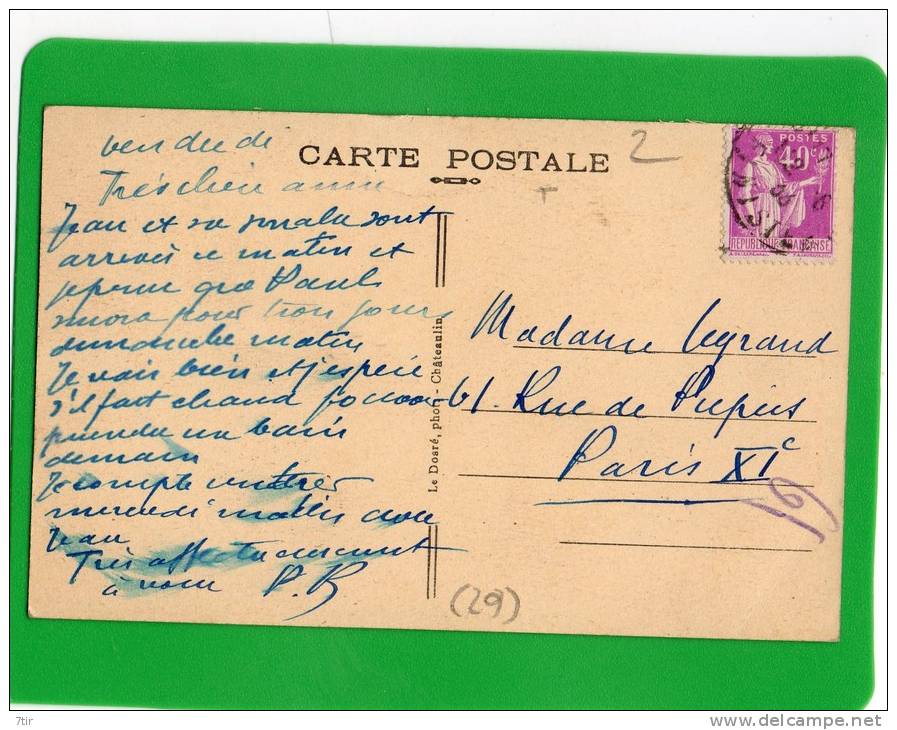 vendredi
CARTE POSTALE
2
Très chère amie
Jean et sa smala sont
arrivés ce matin et
je pense que Paul
sera pour trois jours
dimanche matin
Je vais bien et j'espère
s'il fait chaud
prendre un bain
demain
Je compte rentrer
mercredi matin avec
Jean
Très affectueusement
à vous P.B
Le Doaré, phot. - Châteaulin
POSTES
40c
REPUBLIQUE FRANÇAISE
Madame Legrand
61. Rue de Picpus
Paris XIe
(29)
7tir
www.delcampe.net